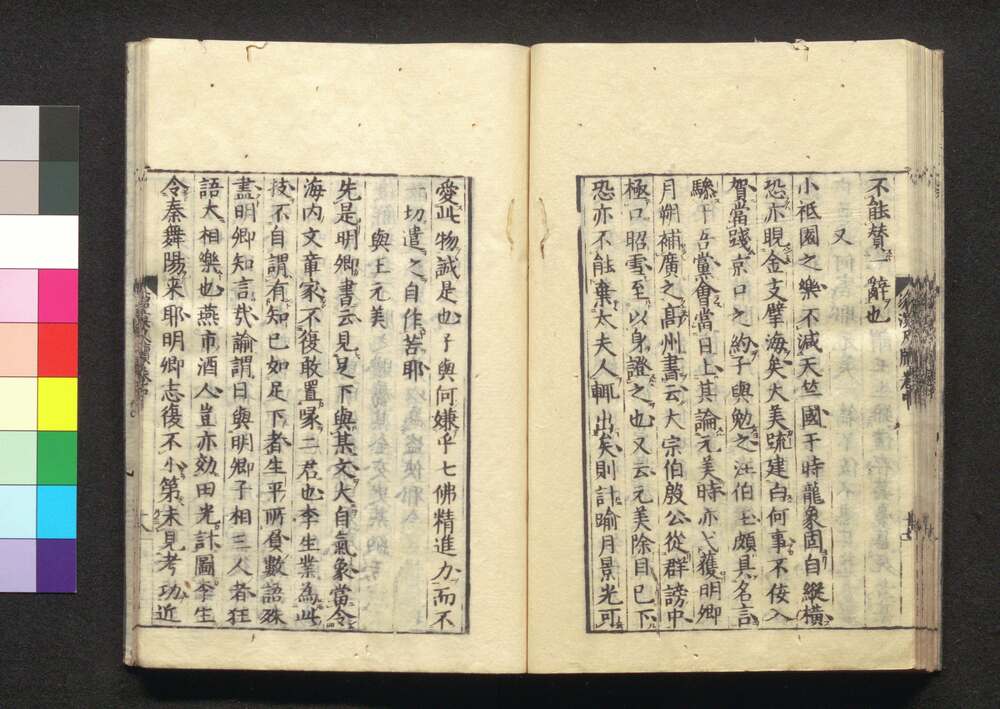 不能贊一辭也
又
小祗園之樂不減天竺國于時龍象固自縱橫
恐亦睨金支擘海矣大美疏建白何事不佞入
賀當踐京口之約子與勉之汪伯玉頗具名言
驂于吾黨會當日上其論元美時亦弋獲明卿
月朔補廣之高州書云大宗伯殷公從群謗中
極口昭雪至以身證之也又云元美除目已下
恐亦不能棄太夫人輒出矣則計踰月景光可
愛此物誠是也子與何嫌乎七佛精進力而不
一切遣之自作苦耶
與王元美
先是明卿書云見足下與某文大自氣象當令
海内文章家不復敢置喙二君也李生業為此
技不自謂有知已如足下者生平所負數語殊
盡明卿知言哉論謂日與明卿子相三人者狂
語大相樂也燕市酒人豈亦効田光計圖李生
令秦舞陽来耶明卿志復不小第未見考功近